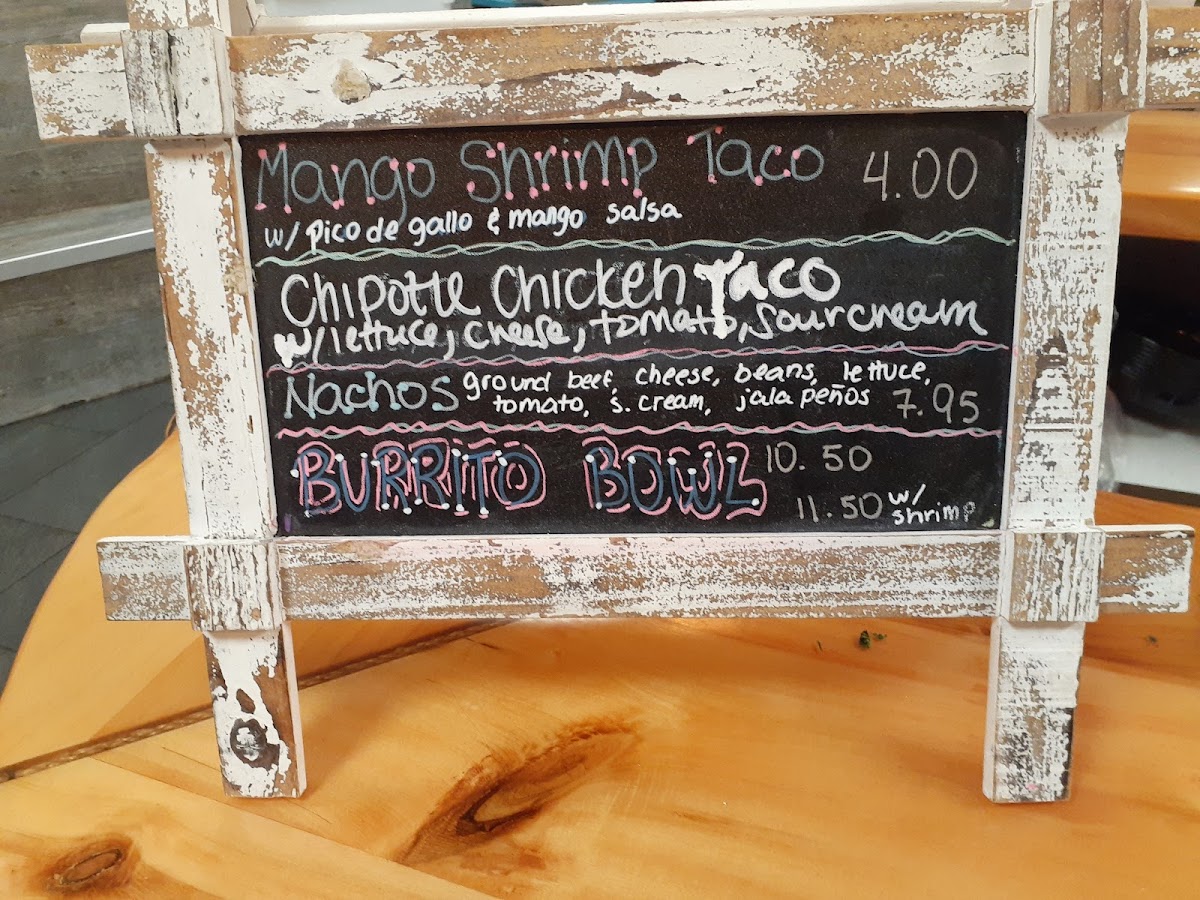 Mango Shrimp Taco 4.00
w/ pico de gallo & mango salsa
Chipotle Chicken Taco
w/ lettuce, cheese, tomato, sour cream
Nachos ground beef, cheese, beans, lettuce,
tomato, s. cream, jalapeños 7.95
BURRITO BOWL 10.50
11.50 w/ shrimp